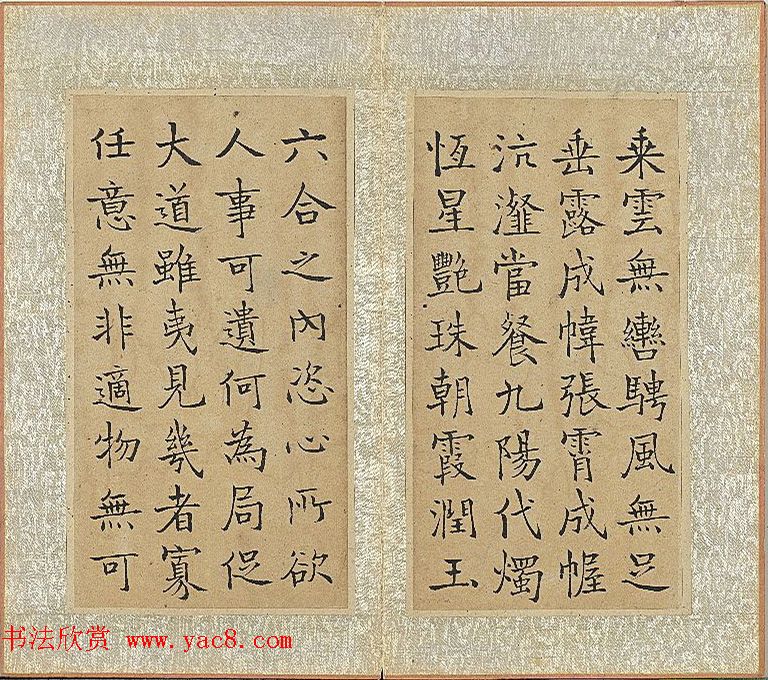 乘雲無轡騁風無足
垂露成幃張霄成幄
沆瀣當餐九陽代燭
恆星艷珠朝霞潤玉
六合之內恣心所欲
人事可遺何為局促
大道雖夷見幾者寡
任意無非適物無可
书法欣赏 www.yac8.com